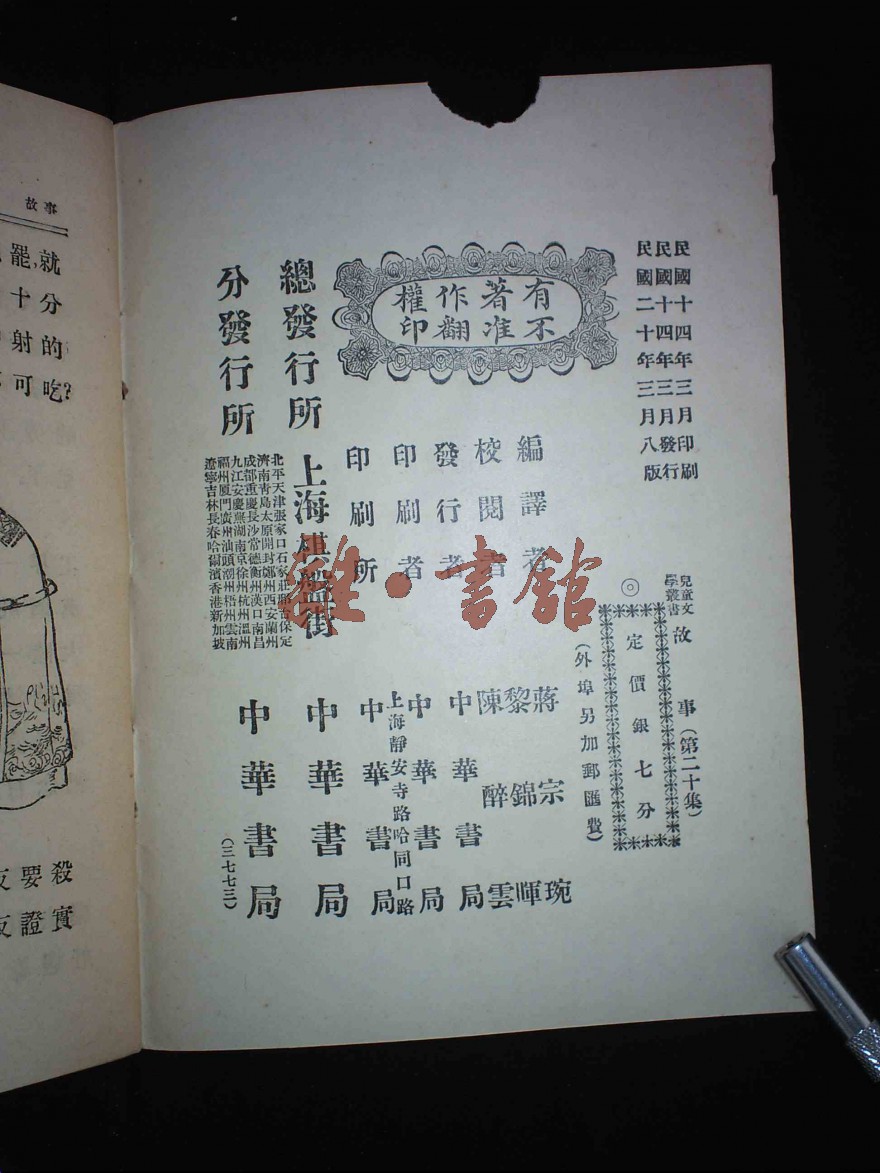 民國十四年三月印刷
民國十四年三月發行
民國二十年三月八版
兒童文
學叢書
故事(第二十集)
◎定價銀七分
(外埠另加郵匯費)
有著作權
不准翻印
編譯者 蔣宗琬
校閱者 黎錦暉 陳醉雲
發行者 中華書局
印刷者 中華書局
上海靜安寺路哈同口路
印刷所 中華書局
總發行所 上海棋盤街 中華書局
分發行所
北平天津張家口石家莊邢台保定
濟南青島太原開封鄭州西安蘭州
成都重慶長沙常德衡州漢口南昌
九江安慶蕪湖南京徐州杭州溫州
福州厦門廣州汕頭潮州梧州雲南
遼寧吉林長春哈爾濱香港新加坡
中華書局
(三七七三)
雜·書館
故事
就
罷,
分
十
的
射
吃?
可
殺
要
實
證